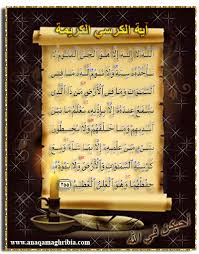 آية الكرسي الكريمة
اللَّهُ لَا إِلَهَ إِلَّا هُوَ الْحَيُّ الْقَيُّومُ لَا
تَأْخُذُهُ سِنَةٌ وَلَا نَوْمٌ لَهُ مَا فِي
السَّمَوَاتِ وَمَا فِي الْأَرْضِ مَنْ ذَا الَّذِي
يَشْفَعُ عِنْدَهُ إِلَّا بِإِذْنِهِ يَعْلَمُ مَا بَيْنَ
أَيْدِيهِمْ وَمَا خَلْفَهُمْ وَلَا يُحِيطُونَ
بِشَيْءٍ مِنْ عِلْمِهِ إِلَّا بِمَا شَاءَ وَسِعَ كُرْسِيُّهُ
السَّمَوَاتِ وَالْأَرْضَ وَلَا يَئُودُهُ
حِفْظُهُمَا وَهُوَ الْعَلِيُّ الْعَظِيمُ ٢٥٥
أحبكن في الله
www.anaqamaghribia.com